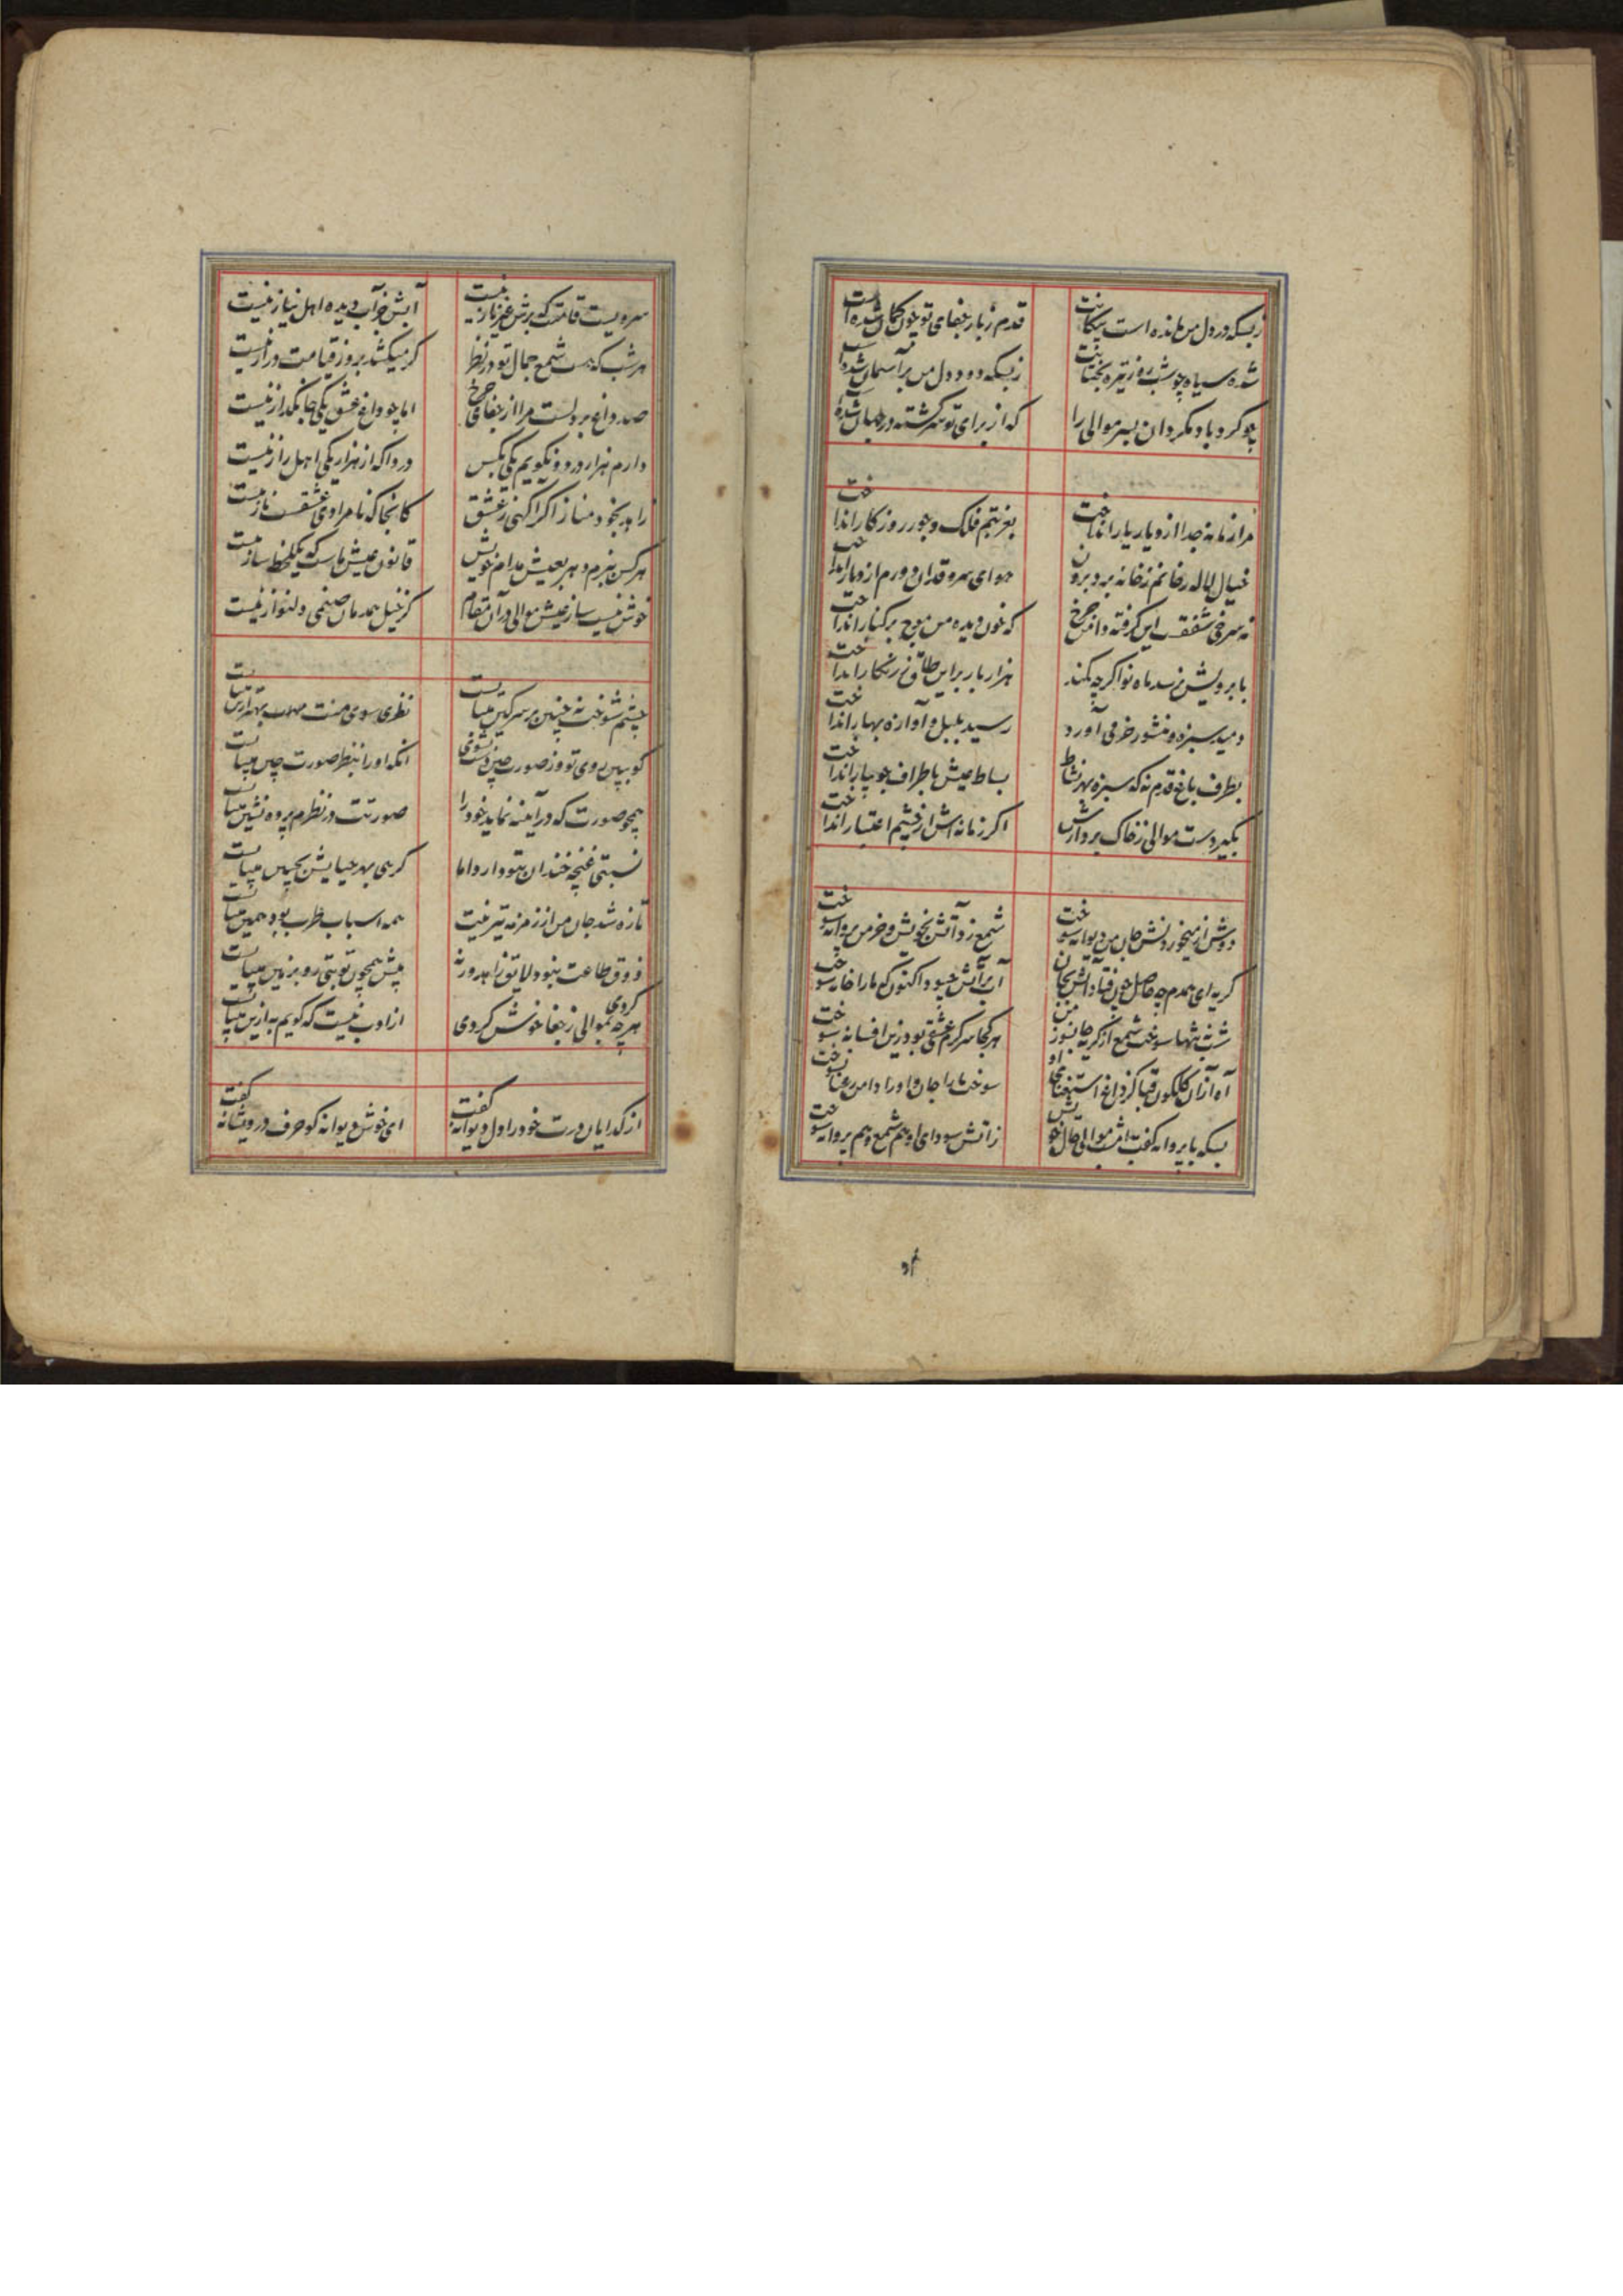 زبسکه در دل من مانده است پیکانت
قدم ز بار جفای تو چون کمان شده است
شده سیاه چو شب روز تیره بختانت
زبسکه دود دل من بر آسمان شده است
چو کرد باد مکردان بسر موالی را
که از برای تو سرکشته در جهان شده
مرا زمانه جدا از دیار یار انداخت
بغربتم فلک و جور روزکار انداخت
خیال لاله رخانم ز خانه برد برون
هوای سرو قدان دورم از دیار انداخت
نه سرخی شفقست این کرفته دامن چرخ
که خون دیده من موج بر کنار انداخت
با برویش نرسد ماه نو اکرچه بکند
هزار بار براین طاق زرنکار انداخت
دمید سبزه و منشور خرمی آورد
رسید بلبل و آوازه بهار انداخت
بطرف باغ قدم نه که سبزه بهر نشاط
بساط عیش باطراف جویبار انداخت
بکیر دست موالی ز خاک بردارش
اکر زمانه اش از چشم اعتبار انداخت
دوش از میخوردنش جان من دیوانه سوخت
شمع زد آتش بخویش و خرمن پروانه سوخت
کریه ای همدم چه حاصل چون فتاد آتش بجان
آب بر آتش چه سود اکنون که ما را خانه سوخت
شب نه تنها سوخت شمع از کریه جانسوز من
هر کجا سرکرم عشقی بود زین افسانه سوخت
آه ازان کلکون قبا کز داغ استغنای او
سوخت ما را جان و او را دامن نسوخت
بسکه با پروانه کفت امشب موالی حال خویش
زاتش سودای او هم شمع و هم پروانه سوخت
سرویست قامتت که برش غیر ناز نیست
آبش جز آب دیده اهل نیاز نیست
هر شب که هست شمع جمال تو در نظر
کر میکشد بروز قیامت دراز نیست
صد داغ بر دلست مرا از جفای چرخ
اما چو داغ عشق یکی جانکداز نیست
دارم هزار درد و نکویم یکی بکس
دردا که از هزار یکی اهل راز نیست
زاهد بخود مناز اکر اکهی ز عشق
کانجا که نامرادی عشقست ناز نیست
هر کس ببزم دهر بعیش مدام خویش
قانون عیش ماست که یکلحظه ساز نیست
خوش نیست ساز عیش موالی در آن مقام
کز خیل همدمان صنمی دلنواز نیست
چشم شوخت نه چنین بر سر کین میبایست
نظری سوی منت بهتر ازین میبایست
کو ببین روی تو و ز صورت چین دست بشوی
انکه او را بنظر صورت چین میبایست
همچو صورت که در آینه نماید خود را
صورتت در نظرم پرده نشین میبایست
نسبتی غنچه خندان بتو دارد اما
کرهی بهر حیایش بجبین میبایست
تازه شد جان من از زمزمه تیر نیت
همه اسباب طرب بود همین میبایست
ذوق طاعت نبود لایق زاهد ورنه
پیش همچون تو بتی رو بزمین میبایست
هرچه کردی بموالی ز جفا خوش کردی
از ادب نیست که کویم به ازین میبایست
از کدایان درت خود را دل دیوانه کفت
ای خوش دیوانه کو حرف درویشانه کفت